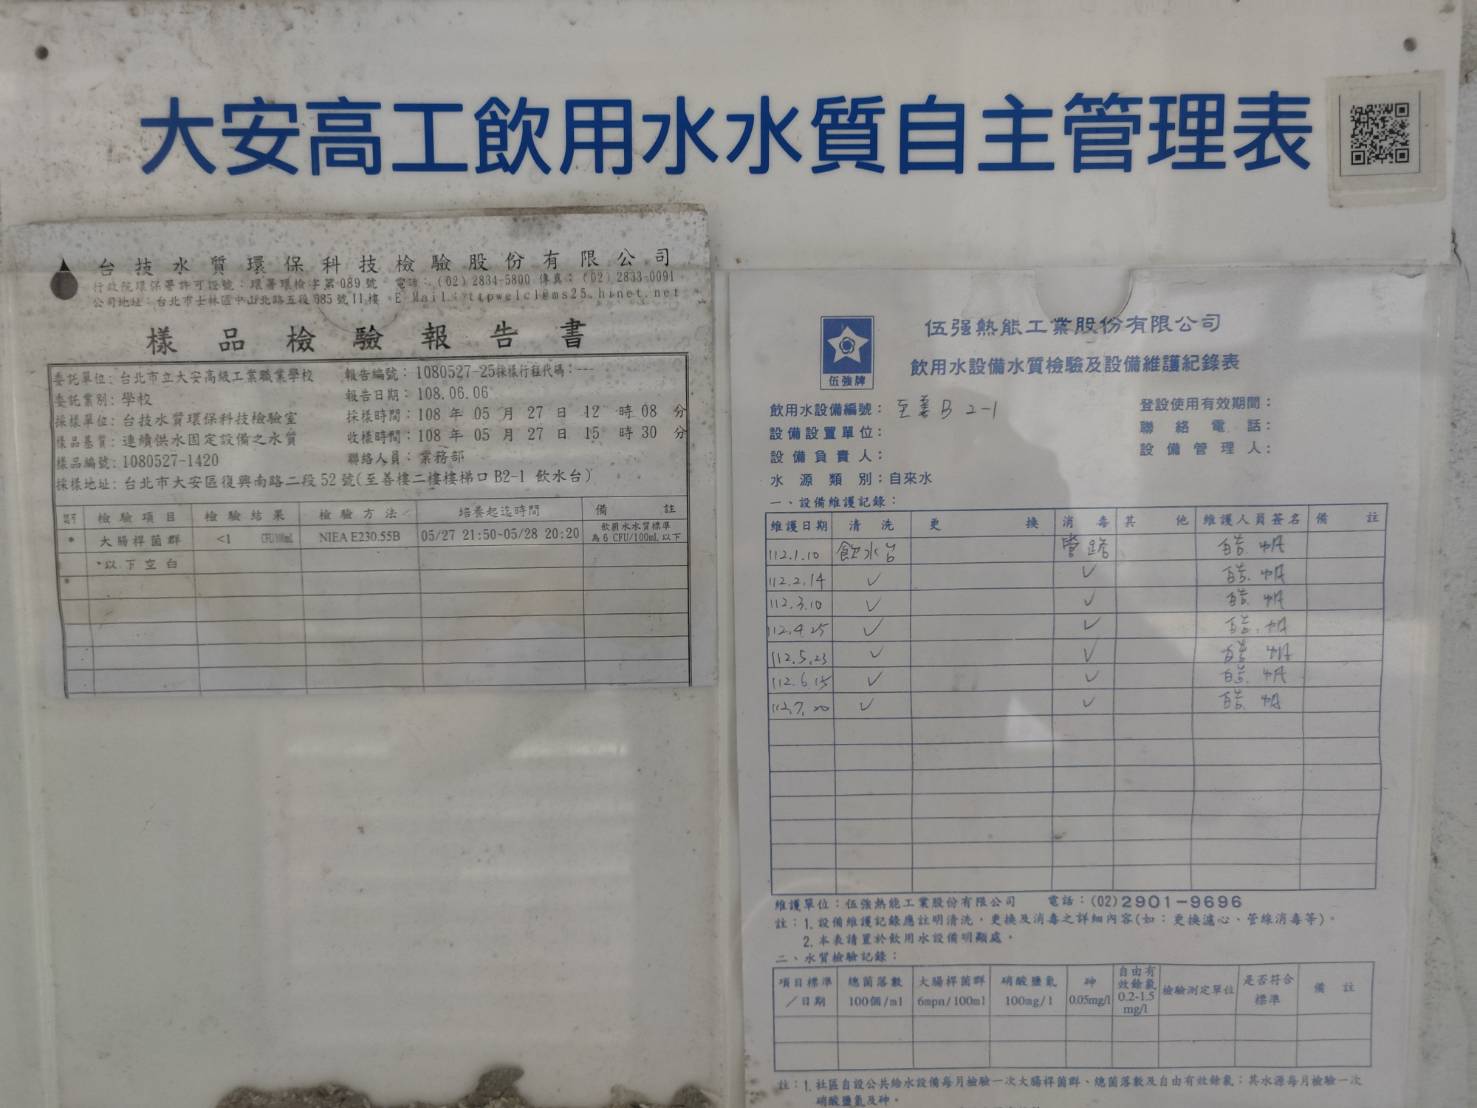 大安高工飲用水水質自主管理表
台技水質環保科技檢驗股份有限公司
行政院環保署許可證號：環署環檢字第089號 電話：(02)2834-5800 傳真：(02)2833-0091
公司地址：台北市士林區中山北路五段685號11樓
樣品檢驗報告書
委託單位：台北市立大安高級工業職業學校 報告編號：1080527-25採樣行程代碼：---
委託業別：學校 報告日期：108.06.06
採樣單位：台技水質環保科技檢驗室 採樣時間：108 年 05 月 27 日 12 時 08 分
樣品基質：連續供水固定設備之水質 收樣時間：108 年 05 月 27 日 15 時 30 分
樣品編號：1080527-1420 聯絡人員：業務部
採樣地址：台北市大安區復興南路二段52號(至善樓二樓樓梯口B2-1 飲水台)
檢驗項目 檢驗結果 檢驗方法 培養起迄時間 備註
* 大腸桿菌群 <1 CFU/100mL NIEA E230.55B 05/27 21:50-05/28 20:20 飲用水水質標準
為 6 CFU/100mL 以下
*以下空白
*
伍強牌
伍强熱能工業股份有限公司
飲用水設備水質檢驗及設備維護紀錄表
飲用水設備編號：至善B 2-1 登設使用有效期間：
設備設置單位： 聯絡電話：
設備負責人： 設備管理人：
水源類別：自來水
一、設備維護記錄：
維護日期 清洗 更換 消毒 其他 維護人員簽名 備註
112.1.10 飲水台 管路
112.2.14 ✓ ✓
112.3.10 ✓ ✓
112.4.25 ✓ ✓
112.5.23 ✓ ✓
112.6.15 ✓ ✓
112.7.20 ✓ ✓
維護單位：伍強熱能工業股份有限公司 電話：(02)2901-9696
註：1.設備維護記錄應註明清洗、更換及消毒之詳細內容(如：更換濾心、管線消毒等)。
2.本表請置於飲用水設備明顯處。
二、水質檢驗記錄：
項目標準／日期 總菌落數 100個/ml 大腸桿菌群 6mpn/100ml 硝酸鹽氮 100mg/l 砷 0.05mg/l 自由有效餘氯 0.2-1.5 mg/l 檢驗測定單位 是否符合標準 備註
註：1.社區自設公共給水設備每月檢驗一次大腸桿菌群、總菌落數及自由有效餘氯；其水源每月檢驗一次
硝酸鹽氮及砷。